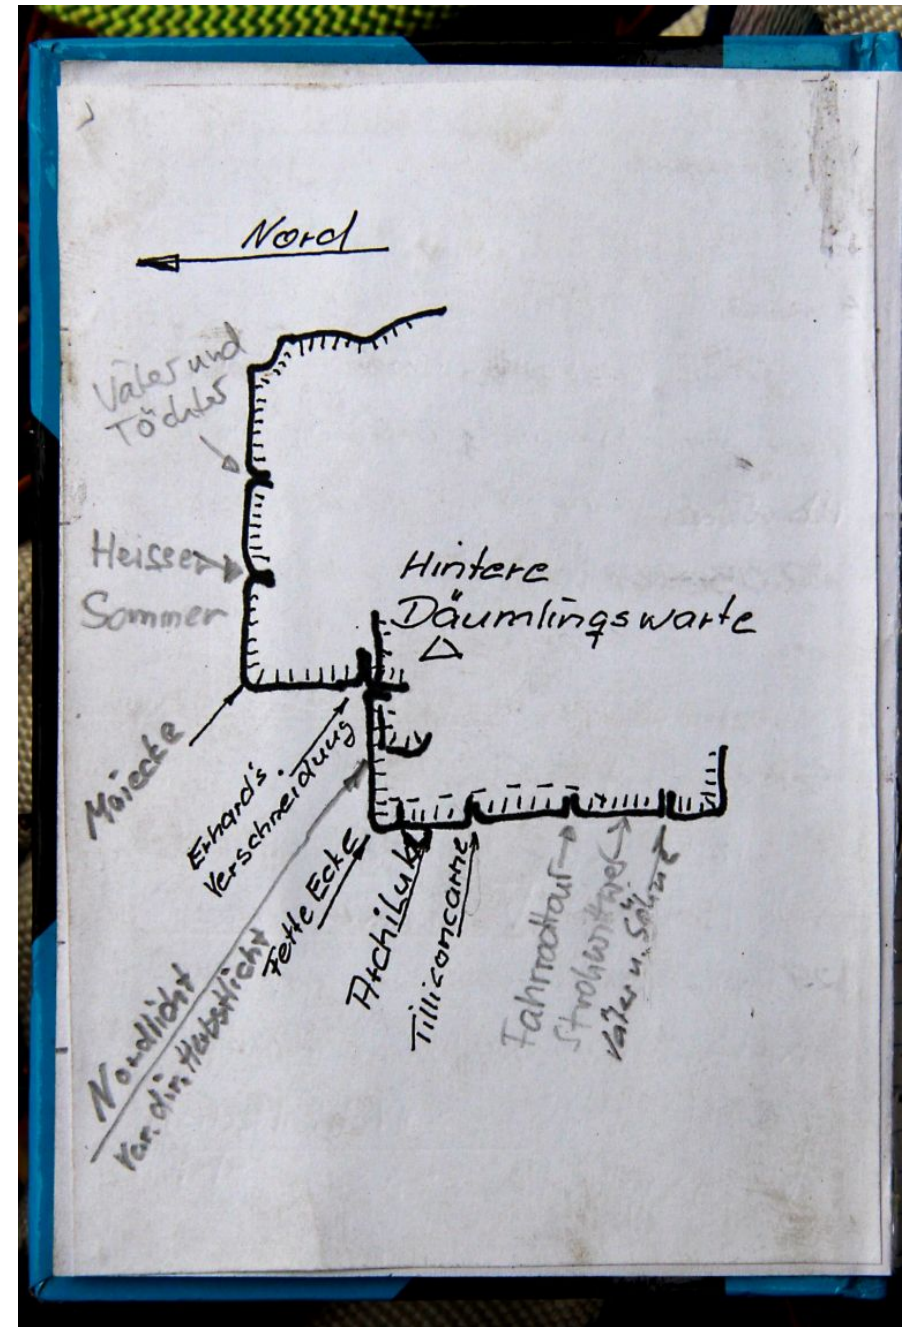 Nord
Väter und
Töchter
Heisser
Sommer
Hintere
Däumlingswarte
Maiecke
Erhard's
Verschneidung
Nordlicht
Var. dir. Herbstlicht
Fette Ecke
Archiluk
Tillicancarne
Fahrradtour
Strohwittwer
Väter u. Söhne